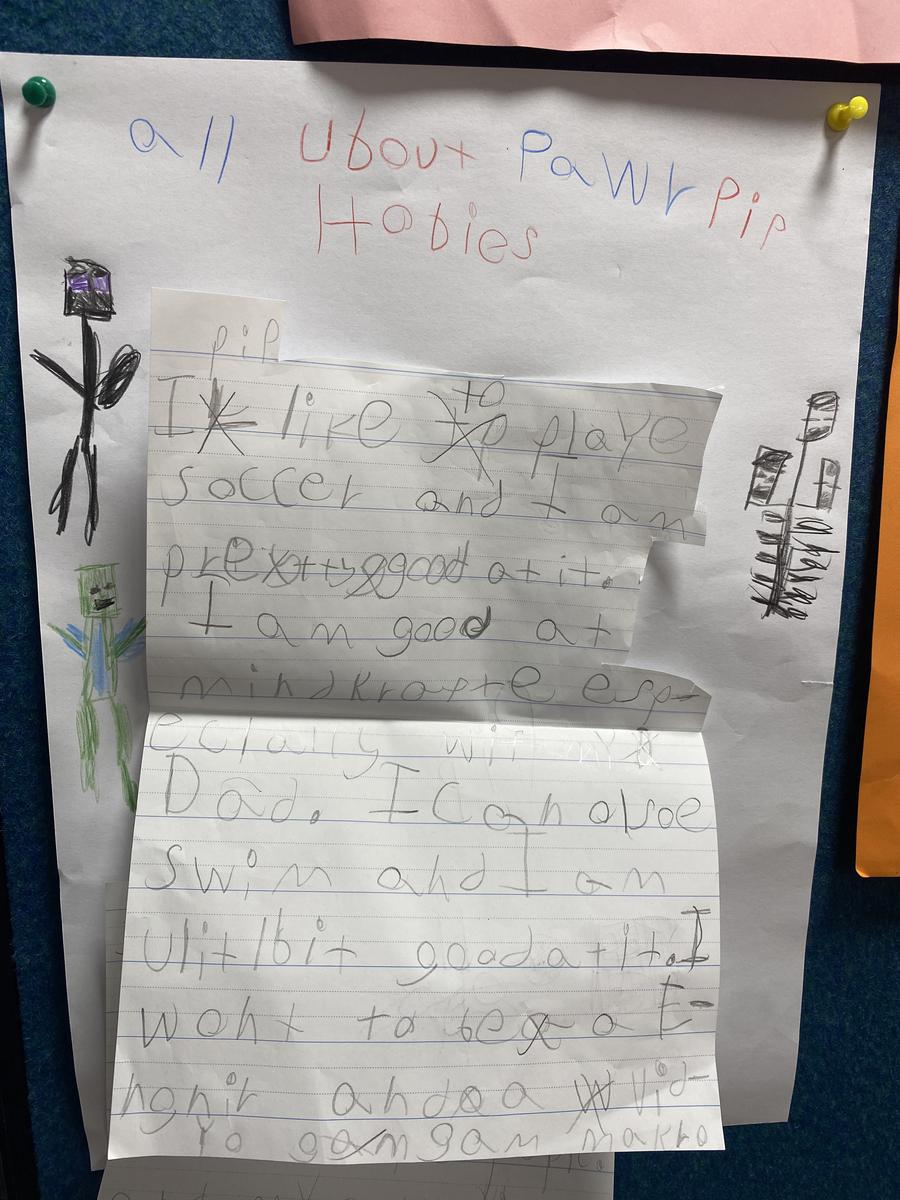 all Ubout Pawr Pip
Hobies
pip
I like to playe
soccer and I am
pretty good at it.
I am good at
mindkrafte esp-
ecially with my
Dad. I can olsoe
swim and I am
ulitlbit good at it. I
woht to be a E-
ngnir and a vid-
yo gam makro